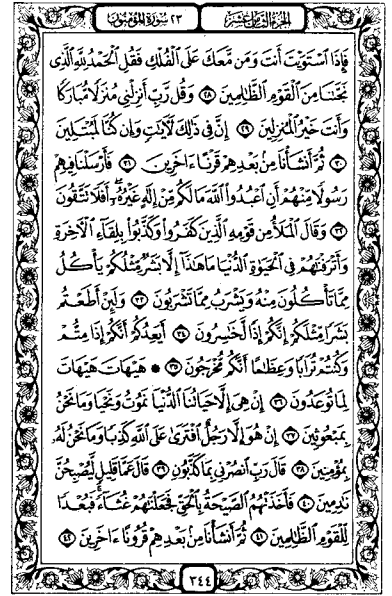 الجزء الثامن عشر ٢٣ سورة المؤمنون
فَإِذَا ٱسْتَوَيْتَ أَنتَ وَمَن مَّعَكَ عَلَى ٱلْفُلْكِ فَقُلِ ٱلْحَمْدُ لِلَّهِ ٱلَّذِى
نَجَّىٰنَا مِنَ ٱلْقَوْمِ ٱلظَّٰلِمِينَ ٢٨ وَقُل رَّبِّ أَنزِلْنِى مُنزَلًا مُّبَارَكًا
وَأَنتَ خَيْرُ ٱلْمُنزِلِينَ ٢٩ إِنَّ فِى ذَٰلِكَ لَءَايَٰتٍ وَإِن كُنَّا لَمُبْتَلِينَ
٣٠ ثُمَّ أَنشَأْنَا مِنۢ بَعْدِهِمْ قَرْنًا ءَاخَرِينَ ٣١ فَأَرْسَلْنَا فِيهِمْ
رَسُولًا مِّنْهُمْ أَنِ ٱعْبُدُوا۟ ٱللَّهَ مَا لَكُم مِّنْ إِلَٰهٍ غَيْرُهُۥٓ أَفَلَا تَتَّقُونَ
٣٢ وَقَالَ ٱلْمَلَأُ مِن قَوْمِهِ ٱلَّذِينَ كَفَرُوا۟ وَكَذَّبُوا۟ بِلِقَآءِ ٱلْءَاخِرَةِ
وَأَتْرَفْنَٰهُمْ فِى ٱلْحَيَوٰةِ ٱلدُّنْيَا مَا هَٰذَآ إِلَّا بَشَرٌ مِّثْلُكُمْ يَأْكُلُ
مِمَّا تَأْكُلُونَ مِنْهُ وَيَشْرَبُ مِمَّا تَشْرَبُونَ ٣٣ وَلَئِنْ أَطَعْتُم
بَشَرًا مِّثْلَكُمْ إِنَّكُمْ إِذًا لَّخَٰسِرُونَ ٣٤ أَيَعِدُكُمْ أَنَّكُمْ إِذَا مِتُّمْ
وَكُنتُمْ تُرَابًا وَعِظَٰمًا أَنَّكُم مُّخْرَجُونَ ٣٥ * هَيْهَاتَ هَيْهَاتَ
لِمَا تُوعَدُونَ ٣٦ إِنْ هِىَ إِلَّا حَيَاتُنَا ٱلدُّنْيَا نَمُوتُ وَنَحْيَا وَمَا نَحْنُ
بِمَبْعُوثِينَ ٣٧ إِنْ هُوَ إِلَّا رَجُلٌ ٱفْتَرَىٰ عَلَى ٱللَّهِ كَذِبًا وَمَا نَحْنُ لَهُۥ
بِمُؤْمِنِينَ ٣٨ قَالَ رَبِّ ٱنصُرْنِى بِمَا كَذَّبُونِ ٣٩ قَالَ عَمَّا قَلِيلٍ لَّيُصْبِحُنَّ
نَٰدِمِينَ ٤٠ فَأَخَذَتْهُمُ ٱلصَّيْحَةُ بِٱلْحَقِّ فَجَعَلْنَٰهُمْ غُثَآءً فَبُعْدًا
لِّلْقَوْمِ ٱلظَّٰلِمِينَ ٤١ ثُمَّ أَنشَأْنَا مِنۢ بَعْدِهِمْ قُرُونًا ءَاخَرِينَ ٤٢
٣٤٤